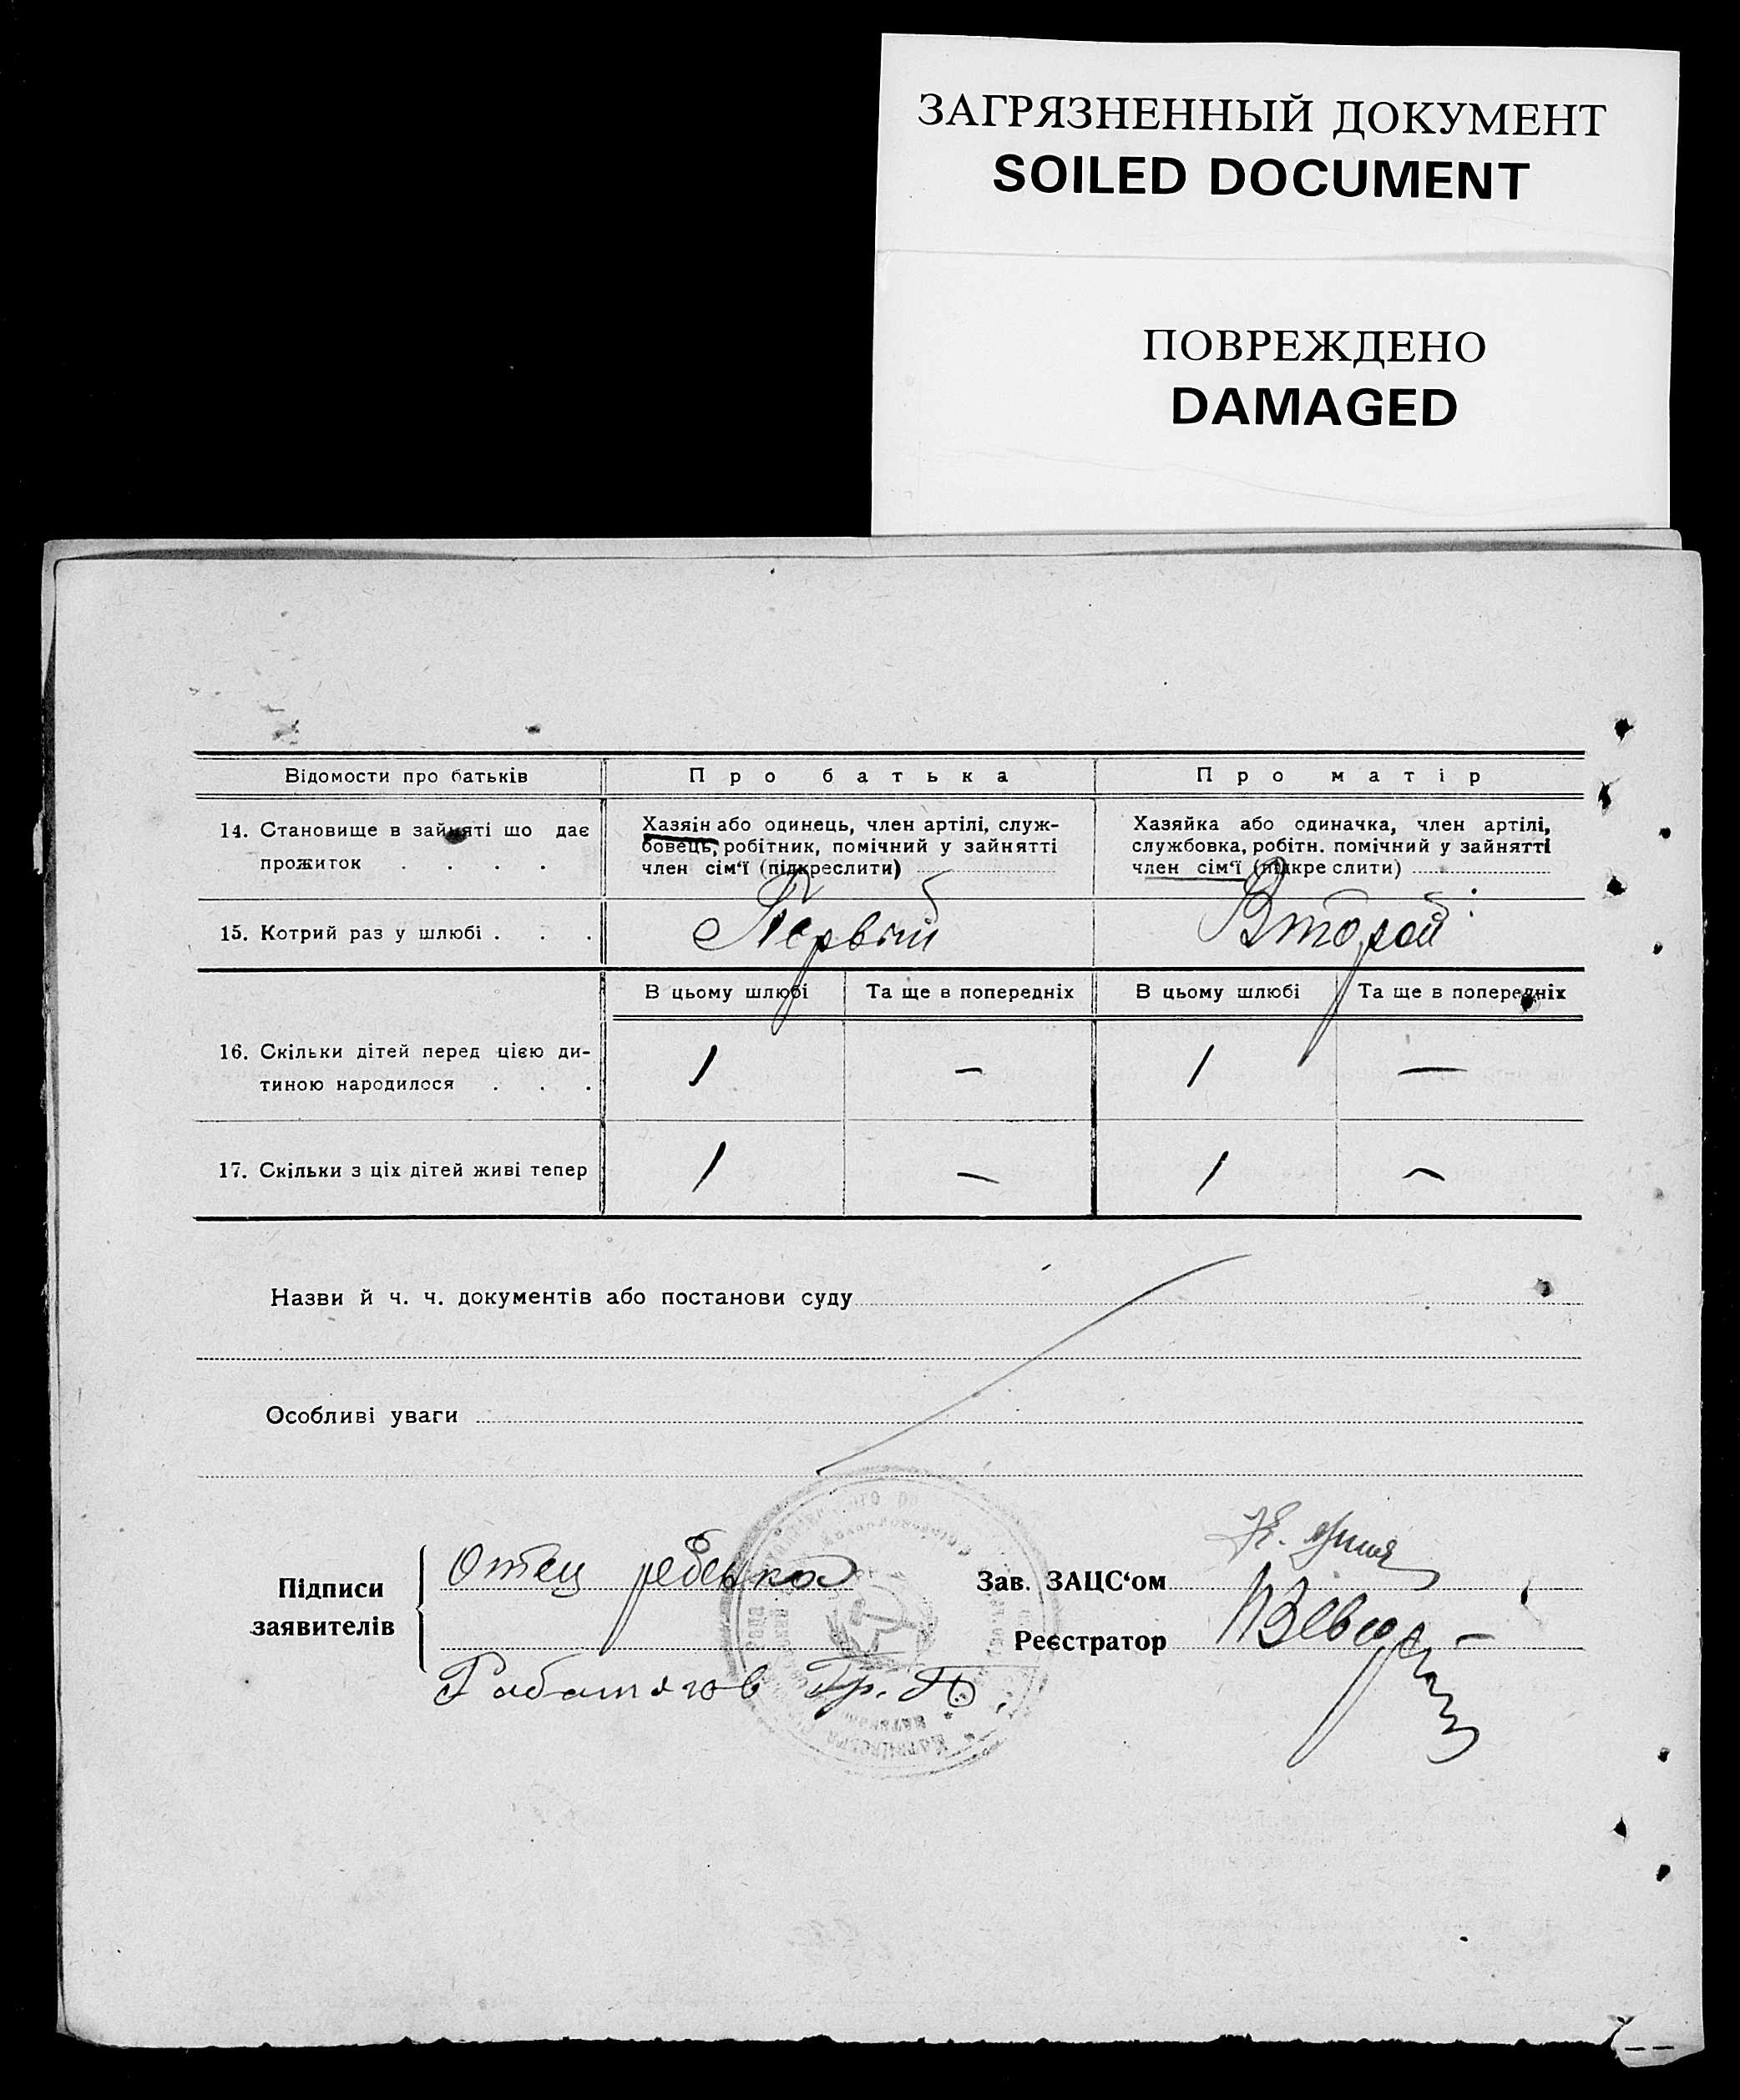 ЗАГРЯЗНЕННЫЙ ДОКУМЕНТ
SOILED DOCUMENT
ПОВРЕЖДЕНО
DAMAGED
Відомости про батьків
Про батька
Про матір
14. Становище в зайняті що дає
прожиток . . . .
Хазяін або одинець, член артілі, служ-
бовець, робітник, помічний у зайнятті
член сім'ї (підкреслити)
Хазяйка або одиначка, член артілі,
службовка, робітн. помічний у зайнятті
член сім'ї (підкре слити)
15. Котрий раз у шлюбі . . .
Первый
Второй
В цьому шлюбі
Та ще в попередніх
В цьому шлюбі
Та ще в попередніх
16. Скільки дітей перед цією ди-
тиною народилося . . .
1
—
1
—
17. Скільки з ціх дітей живі тепер
1
—
1
—
Назви й ч. ч. документів або постанови суду
Особливі уваги
Підписи
заявителів
Отец ребенка
Зав. ЗАЦС'ом
Реєстратор
Гр. П.